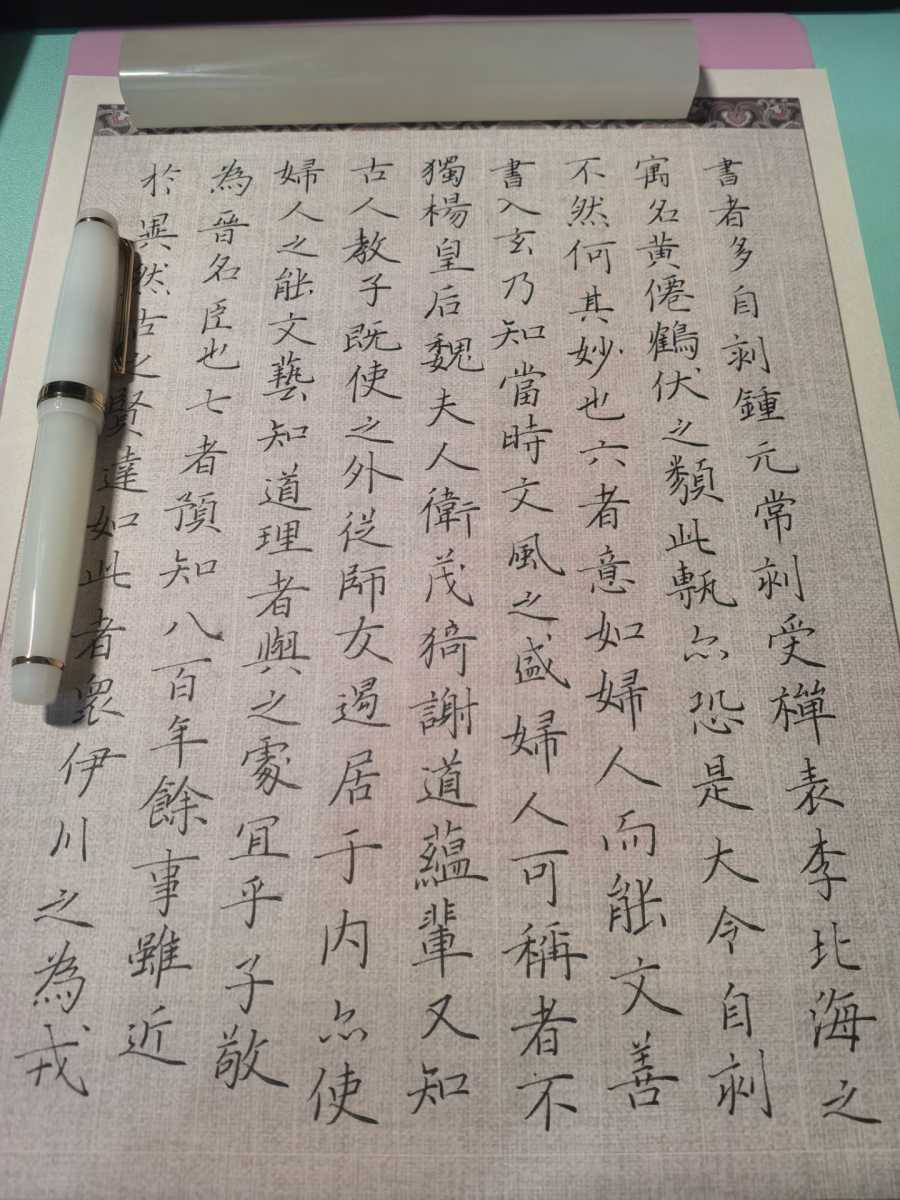 書者多自刻鍾元常刻受禪表李北海之
寓名黃僊鶴伏之類此甎亦恐是大令自刻
不然何其妙也六者意如婦人而能文善
書入玄乃知當時文風之盛婦人可稱者不
獨楊皇后魏夫人衛茂猗謝道蘊輩又知
古人教子既使之外從師友退居于内亦使
婦人之能文藝知道理者與之處宜乎子敬
為晉名臣也七者預知八百年餘事雖近
於異然古之賢達如此者衆伊川之為戎